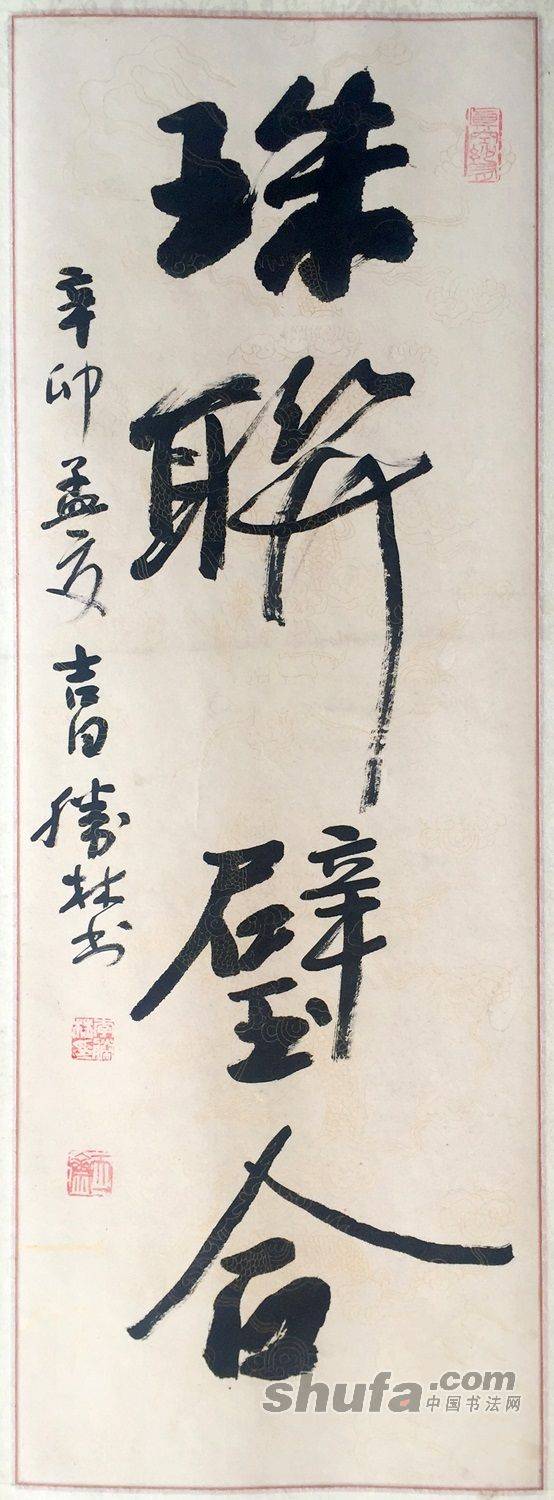 珠聯璧合
辛卯孟夏曹勝林書
shufa.com
中国书法网